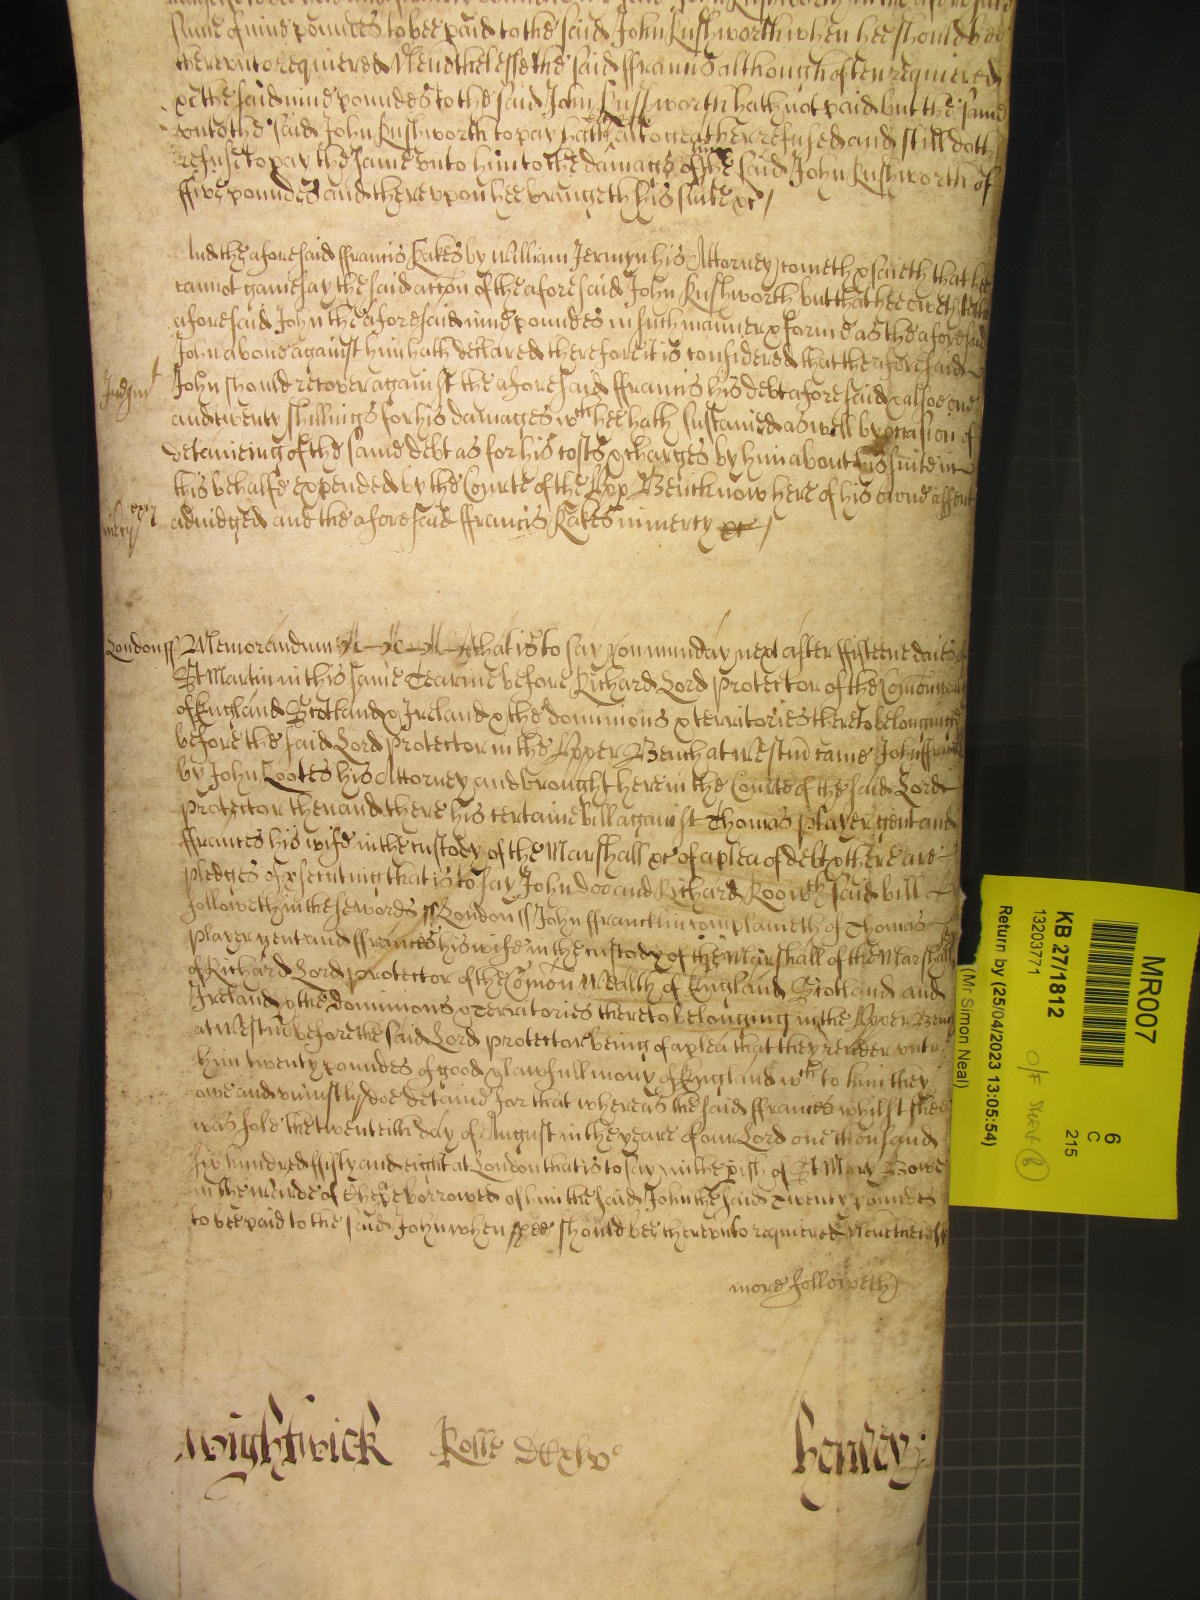 summe of nine poundes to bee paid to the said John Rushworth when hee should bee
therevnto requiered Neuthelesse the said ffrancis although often requiered
xc the said nine poundes to the said John Rushworth hath not paid but the same
vnto the said John Rushworth to pay hath altogeather refused and still doth
refuse to pay the same vnto him to the damage of the said John Rushworth of
ffive poundes and therevpon hee bringeth his suite xc
And the aforesaid ffrancis Eakes by William Jermyn his Attorney cometh x saieth that hee
cannot gainesay the said accon of the aforesaid John Rushworth but that hee oweth to the
aforesaid John the aforesaid nine poundes in such manner x forme as the aforesaid
John aboue against him hath declared therefore it is considered that the aforesaid
Judgmt
John should recover against the aforesaid ffrancis his debt aforesaid x alsoe one
and twenty shillings for his damages wch hee hath sustained as well by occasion of
deteineing of the same debt as for his costs x charges by him about his suite in
this behalfe expended by the Courte of the Vpp Bench now here of his owne assent
mercy
adiudged and the aforesaid ffrancis Eakes in mercy xc
London ss Memorandum that is to say on munday next after ffifteene daies of
St Martin in this same Tearme before Richard Lord Protector of the Comonwealth
of England Scotland x Ireland x the dominions x territories thereto belonging
before the said Lord Protector in the Vpper Bench at Westm came John
by John Cootes his Attorney and brought here in the Courte of the said Lord
Protector then and there his certaine bill against Thomas Player gent and
ffrances his wife in the custody of the Marshall xc of a plea of debt x there are
pledges of psecuting that is to say John Doo and Richard Roo wch said bill
followeth in these words ss London ss John ffrancklin complaineth of Thomas
Player gent and ffrances his wife in the custody of the Marshall of the Marshalsey
of Richard Lord Protector of the Comon Wealth of England Scotland and
Ireland x the dominions x Territories thereto belonging in the Vpper Bench
at Westm before the said Lord Protector being of a plea that they render vnto
him twenty poundes of good x lawfull mony of England wch to him they
owe and vniustly doe detaine for that whereas the said ffrances whilst shee
was sole the twentith day of August in the yeare of our Lord one thousand
six hundred ffifty and eight at London that is to say in the pish of St Mary Bowe
in the warde of Cheepe borrowed of him the said John the said Twenty poundes
to bee paid to the said John when shee should bee therevnto requiered Neuthelesse
more followeth
Wightwick Rolle DCxlvo Henley
MR007
6
C
215
KB 27/1812
13203771
O/F
Return by (25/04/2023 13:05:54)
(Mr Simon Neal)